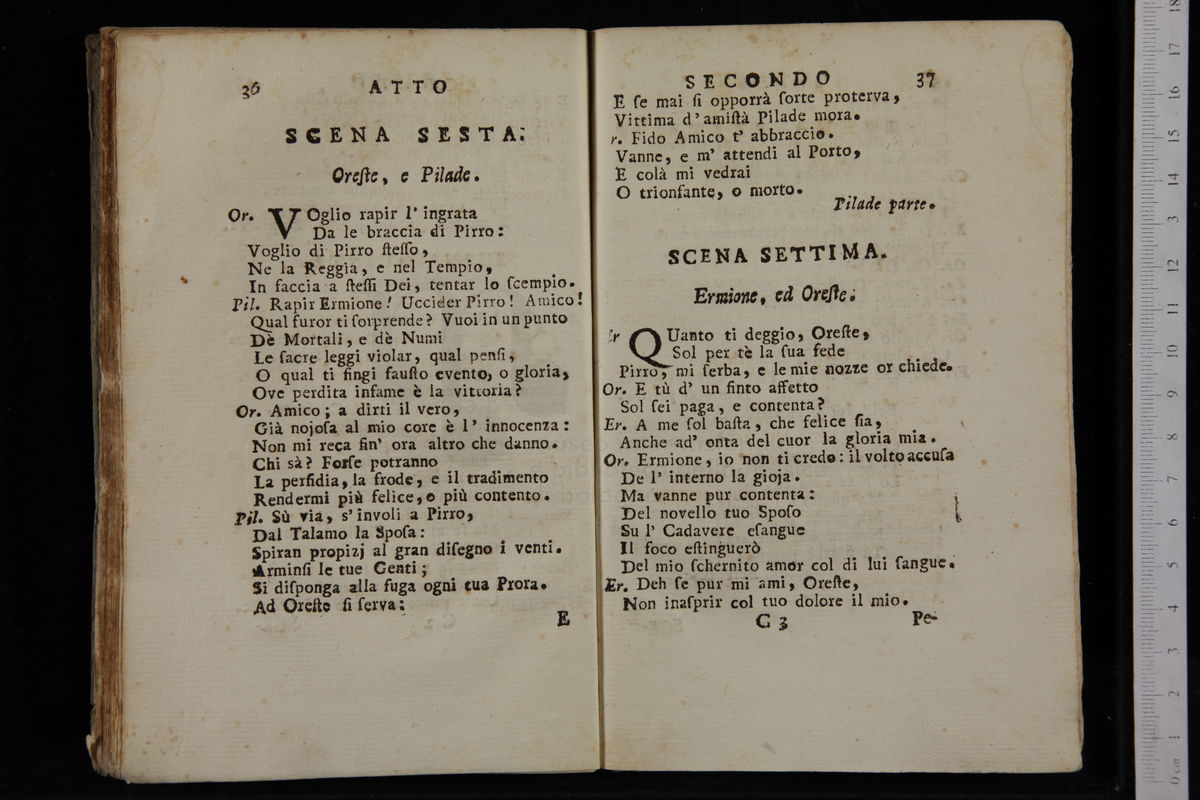 36
ATTO
SCENA SESTA.
Oreſte, e Pilade.
Or. VOglio rapir l' ingrata
Da le braccia di Pirro:
Voglio di Pirro ſteſſo,
Ne la Reggia, e nel Tempio,
In faccia a ſteſſi Dei, tentar lo ſcempio.
Pil. Rapir Ermione! Uccider Pirro! Amico!
Qual furor ti ſorprende? Vuoi in un punto
Dè Mortali, e dè Numi
Le ſacre leggi violar, qual penſi,
O qual ti fingi fauſto evento, o gloria,
Ove perdita infame è la vittoria?
Or. Amico; a dirti il vero,
Già nojoſa al mio core è l' innocenza:
Non mi reca fin' ora altro che danno.
Chi sà? Forſe potranno
La perfidia, la frode, e il tradimento
Rendermi più felice, o più contento.
Pil. Sù via, s' involi a Pirro,
Dal Talamo la Spoſa:
Spiran propizj al gran diſegno i venti.
Arminſi le tue Genti;
Si diſponga alla fuga ogni tua Prora.
Ad Oreſte ſi ſerva:
E
SECONDO
37
E ſe mai ſi opporrà ſorte proterva,
Vittima d' amiſtà Pilade mora.
r. Fido Amico t' abbraccio.
Vanne, e m' attendi al Porto,
E colà mi vedrai
O trionfante, o morto.
Pilade parte.
SCENA SETTIMA.
Ermione, ed Oreſte.
Er QUanto ti deggio, Oreſte,
Sol per tè la ſua fede
Pirro, mi ſerba, e le mie nozze or chiede.
Or. E tù d' un finto affetto
Sol ſei paga, e contenta?
Er. A me ſol baſta, che felice ſia,
Anche ad' onta del cuor la gloria mia.
Or. Ermione, io non ti credo: il volto accuſa
De l' interno la gioja.
Ma vanne pur contenta:
Del novello tuo Spoſo
Su l' Cadavere eſangue
Il foco eſtinguerò
Del mio ſchernito amor col di lui ſangue.
Er. Deh ſe pur mi ami, Oreſte,
Non inaſprir col tuo dolore il mio.
G 3
Pe-
0 cm 1 2 3 4 5 6 7 8 9 10 11 12 13 14 15 16 17 18